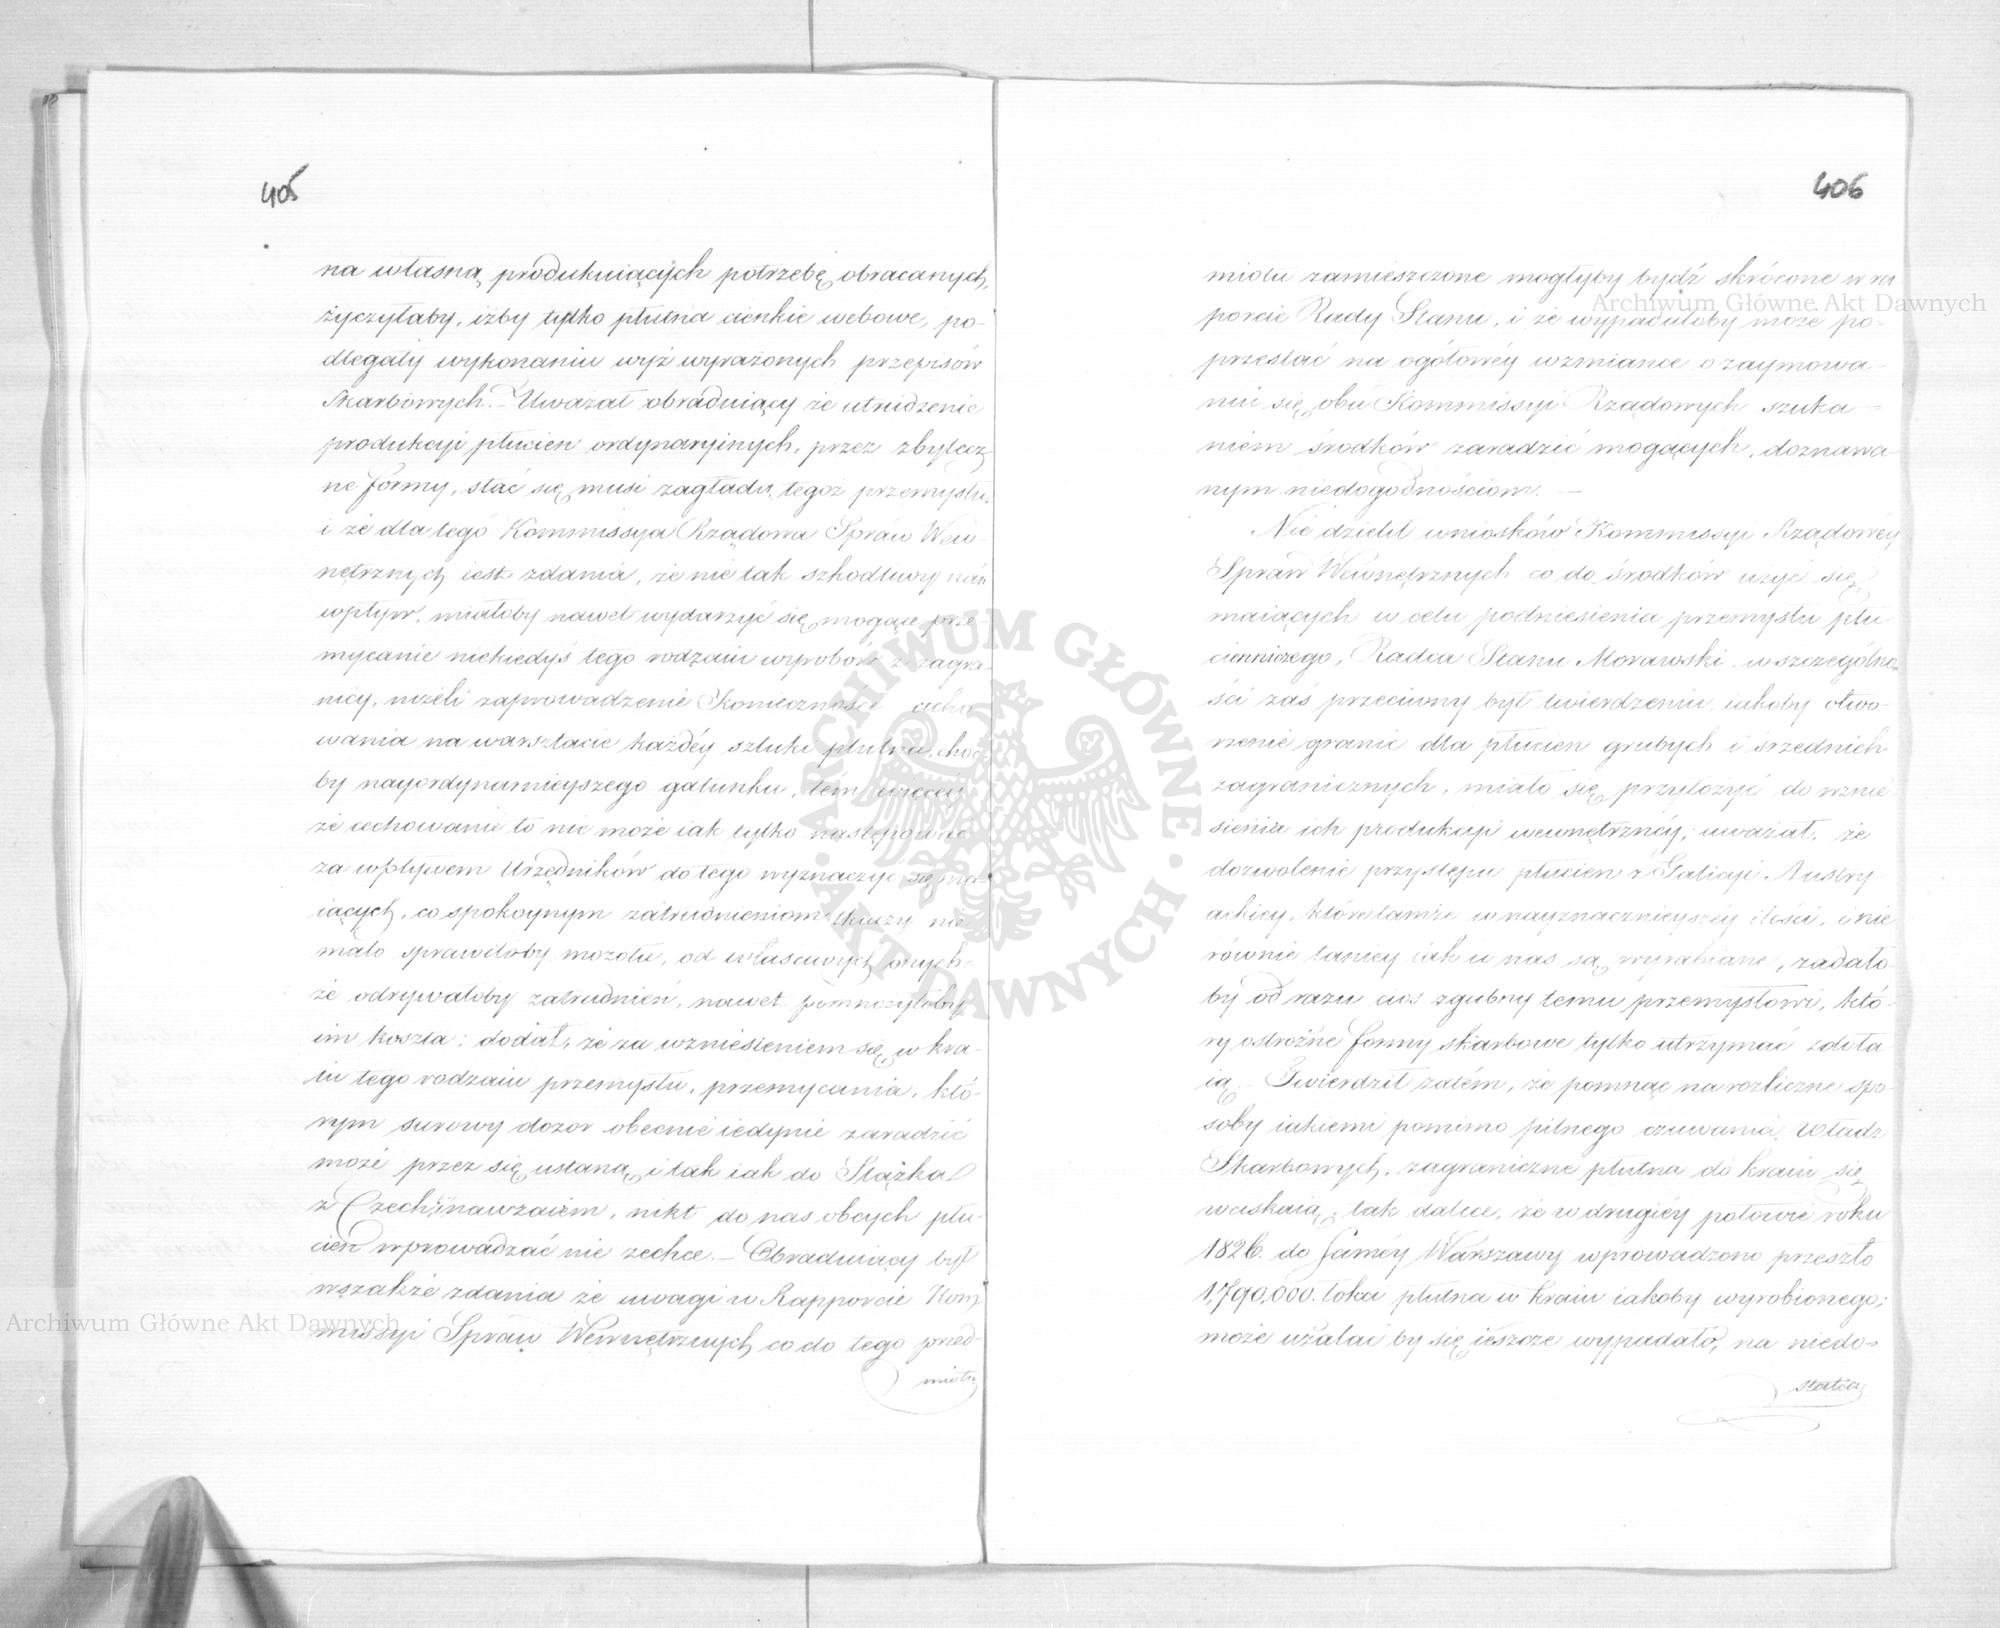 405
na własną produkuiących potrzebę obracanych,
życzyłaby, iżby tylko płutna cienkie webowe, po-
dlegały wykonaniu wyż wyrażonych przepisów
Skarbowych. – Uważał obraduiący że utrudzenie
produkcyi płucien ordynaryinych, przez zbytecz
ne formy, stać się musi zagładą tegoż przemysłu,
i że dla tego Kommissya Rządowa Spraw Wew-
nętrznych iest zdania, że nie tak szkodliwy nań
wpływ, miałoby nawet wydarzyć się mogące prze-
mycanie niekiedyś tego rodzaiu wyrobów z zagra-
nicy, niżeli zaprowadzenie Konieczności cecho
wania na warsztacie każdéy sztuki płutna, choć-
by nayordynarnieyszego gatunku, tém więcéy
że cechowanie to nie może iak tylko następować
za wpływem Urzędników do tego wyznaczyć się ma-
iących, co spokoynym zatrudnieniom tkaczy nie
mało sprawiłoby mozołu, od właściwych onych-
że odrywałoby zatrudnień, nawet pomnożyłoby
im koszta; dodał, że za wzniesieniem się w kra-
iu tego rodzaiu przemysłu, przemycania, któ-
rym surowy dozór obecnie iedynie zaradzić
może przez się ustaną, i tak iak do Szlązka
z Czech i nawzaiem, nikt do nas obcych płu-
cien wprowadzać nie zechce. – Obraduiący był
wszakże zdania że uwagi w Rapporcie Kom
missyi Spraw Wewnętrznych co do tego przed-
miotu
406
miotu zamieszczone mogłyby bydź skrócone w ra
porcie Rady Stanu, i że wypadałoby może po-
przestać na ogółowéy wzmiance o zaymowa-
niu się obu Kommissyi Rządowych szuka-
niem środków zaradzić mogących, doznawa-
nym niedogodnościom. –
Nie dzielił wniosków Kommissyi Rządowéy
Spraw Wewnętrznych co do środków użyć się
maiących w celu podniesienia przemysłu płu-
cienniczego, Radca Stanu Morawski, w szczególno-
ści zaś przeciwny był twierdzeniu, iakoby otwo-
rzenie granic dla płucien grubych i średnich
zagranicznych, miało się przyłożyć do wznie
sienia ich produkcyi wewnętrznéy; uważał, że
dozwolenie przystępu płucien z Galicyi Austry
ackiey, które tamże w nayznacznieyszéy ilości, i nie
równie taniey iak u nas są wyrabiane, zadało-
by od razu cios zgubny temu przemysłowi, któ-
ry ostrożne formy skarbowe tylko utrzymać zdoła
ią. – Twierdził zatém, że pomnąc na rozliczne spo-
soby iakiemi pomimo pilnego czuwania Władz
Skarbowych, zagraniczne płutna do kraiu się
wciskaią, tak dalece, że w drugiéy połowie roku
1826. do saméy Warszawy wprowadzono przeszło
1,790,000. łokci płutna w kraiu iakoby wyrobionego;
może użalać by się ieszcze wypadało, na niedo-